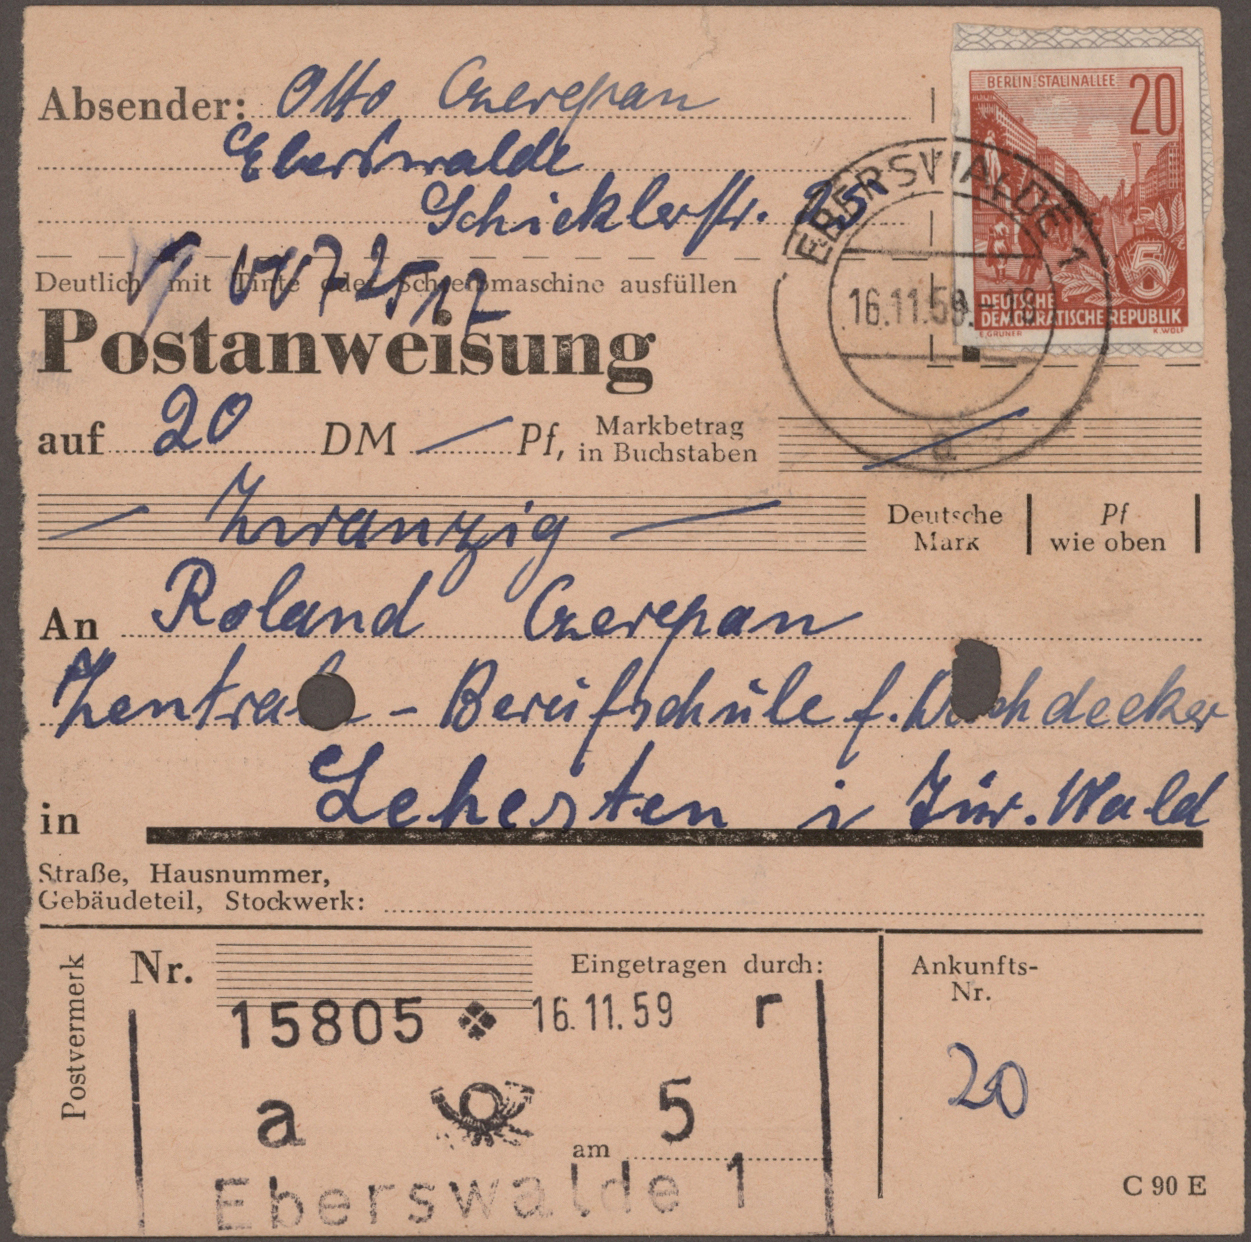 BERLIN-STALINALLEE
20
Absender: Otto Czerepan
Eberswalde
Schicklerstr. 25
EBERSWALDE 1
Deutlich mit Tinte oder Schreibmaschine ausfüllen
16.11.59.
DEUTSCHE
DEMOKRATISCHE REPUBLIK
E.GRUNER K.WOLF
5
Postanweisung
auf 20 DM — Pf, Markbetrag
in Buchstaben
a
— Zwanzig —
Deutsche
Mark
Pf
wie oben
An Roland Czerepan
Zentral - Berufschule f. Dachdecker
in Lehesten i Tür. Wald
Straße, Hausnummer,
Gebäudeteil, Stockwerk:
Postvermerk
Nr.
Eingetragen durch:
Ankunfts-
Nr.
15805 16.11.59 r
20
a 5
am
Eberswalde 1
C 90 E